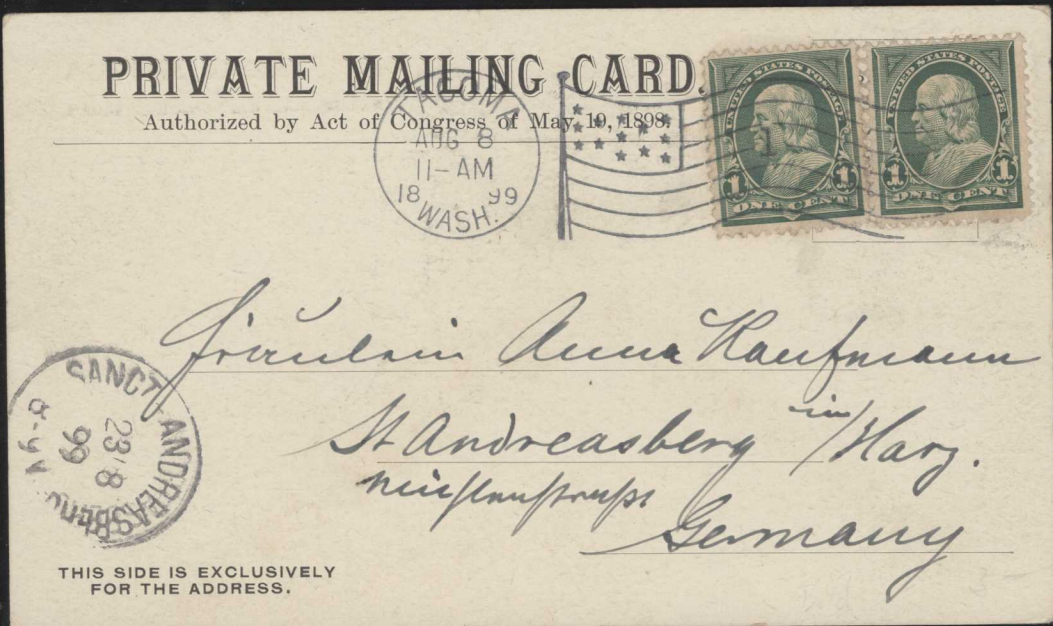 PRIVATE MAILING CARD.
Authorized by Act of Congress of May 19, 1898.
TACOMA
AUG 8
11-AM
18 99
WASH.
UNITED STATES POSTAGE
1 1
ONE CENT
UNITED STATES POSTAGE
1 1
ONE CENT
Fräulein Anna Kaufmann
St Andreasberg im/Harz.
Germany
SANCT ANDREASBERG
23 8
99
8-9N
THIS SIDE IS EXCLUSIVELY
FOR THE ADDRESS.